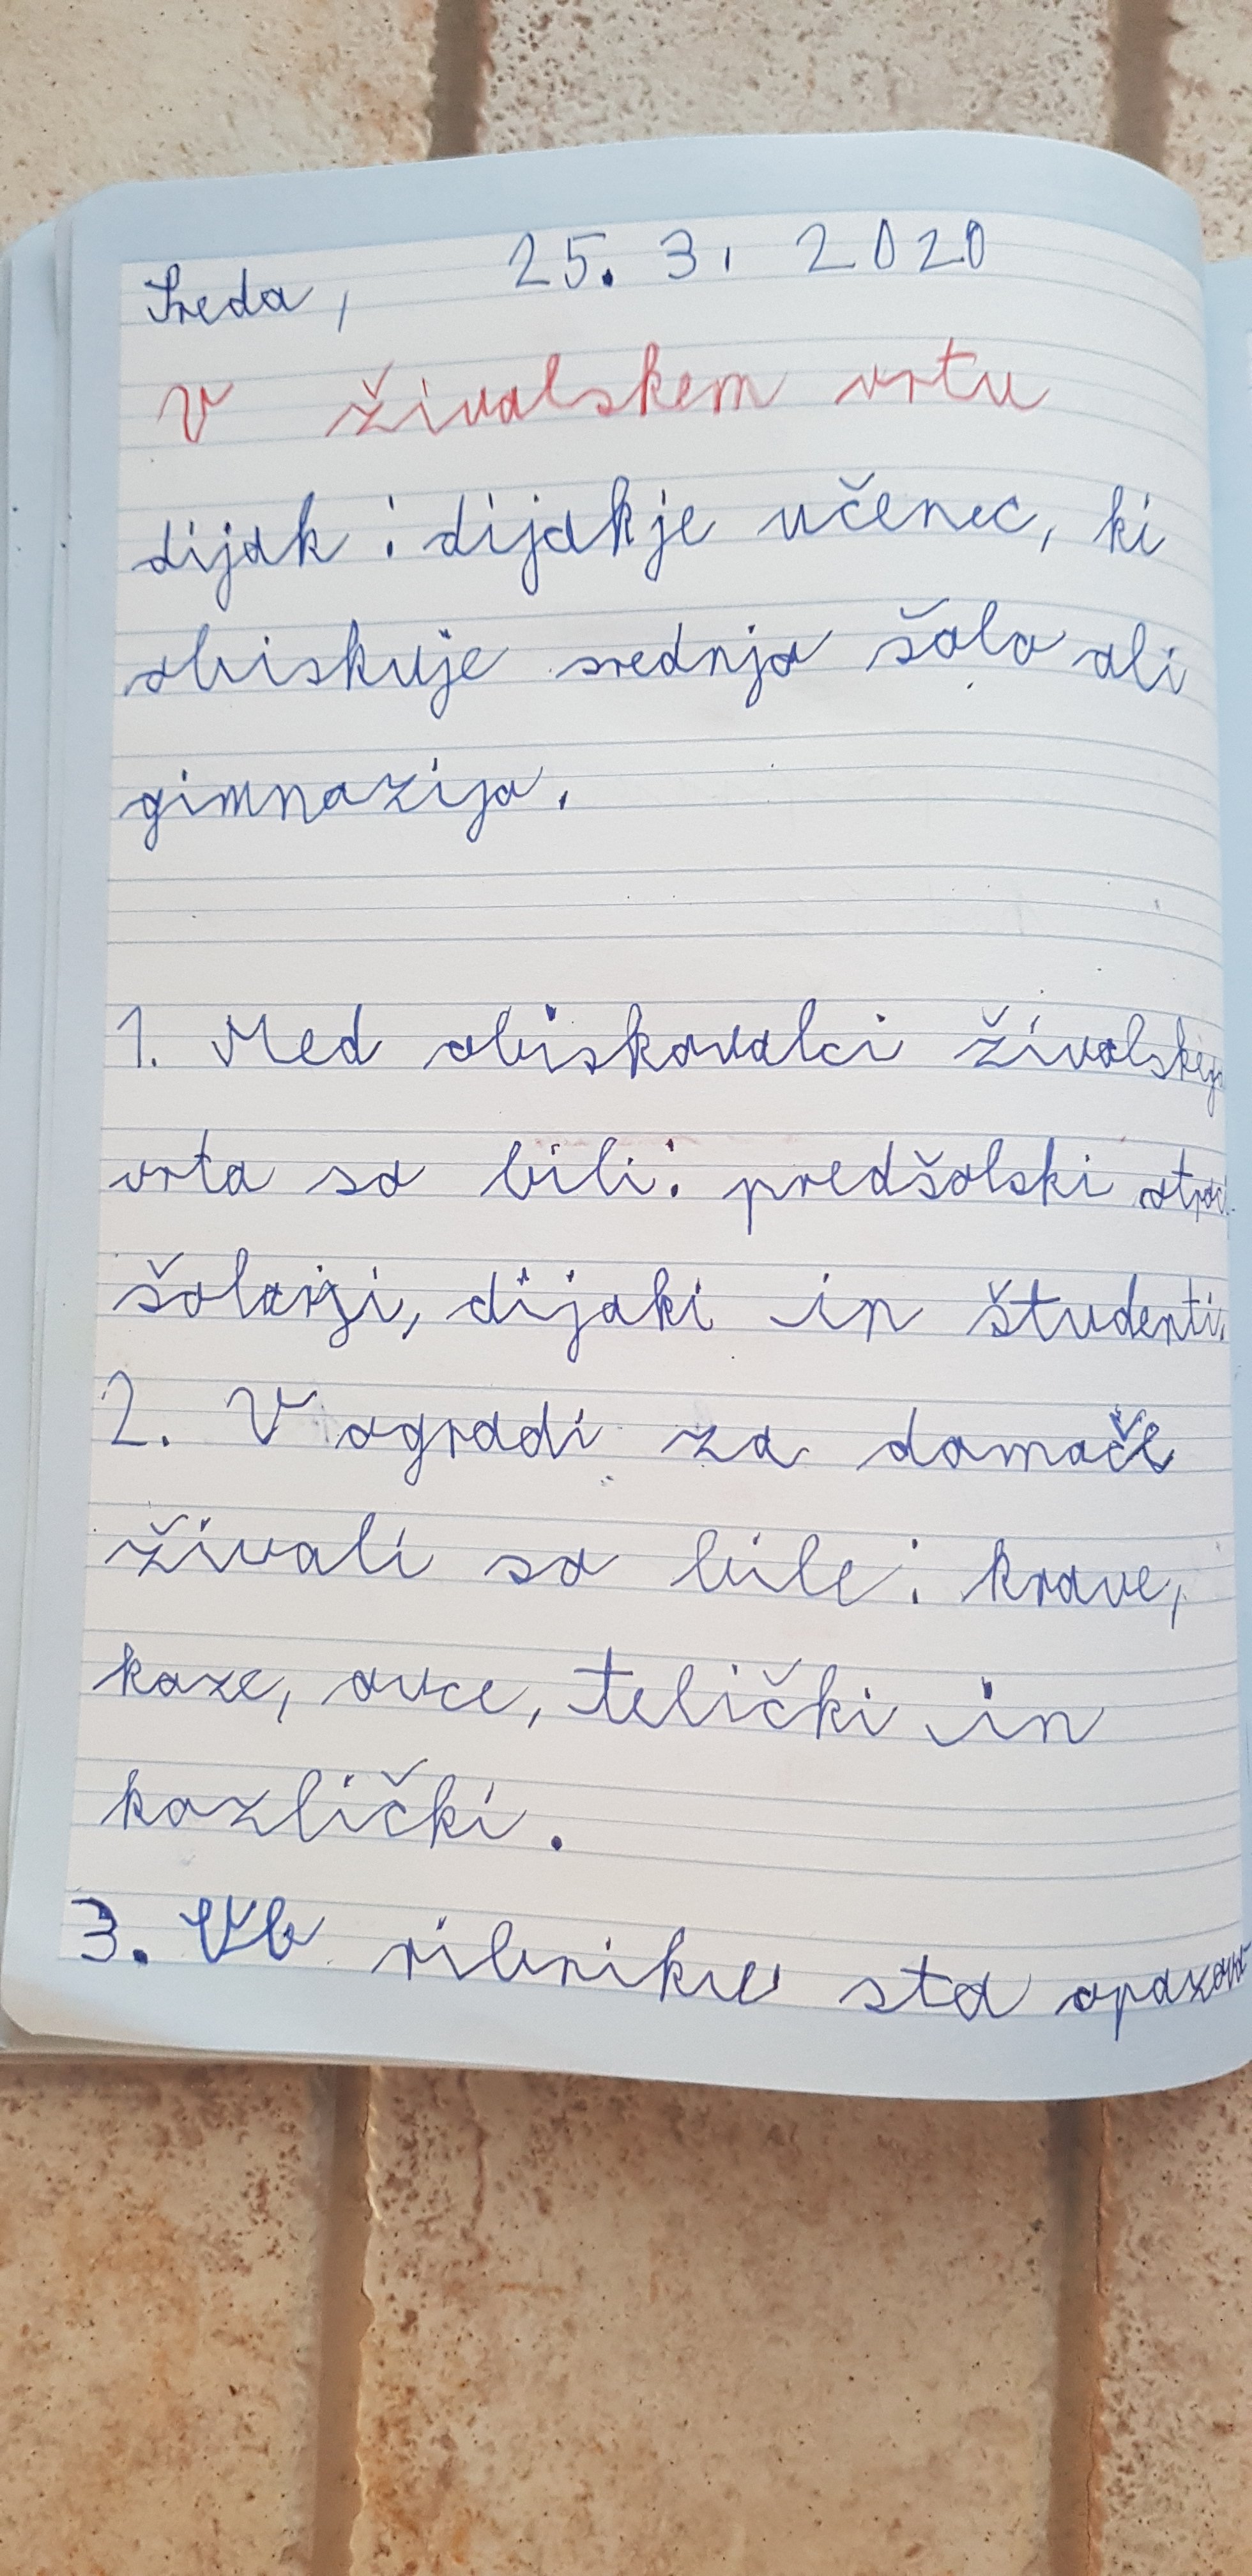 Sreda, 25. 3. 2020
V živalskem vrtu
dijak: dijak je učenec, ki
obiskuje srednjo šolo ali
gimnazijo.
1. Med obiskovalci živalskega
vrta so bili: predšolski otroci
šolarji, dijaki in študenti.
2. V ogradi za domače
živali so bile: krave,
koze, ovce, telički in
kozlički.
3. V ribniku sta opazova